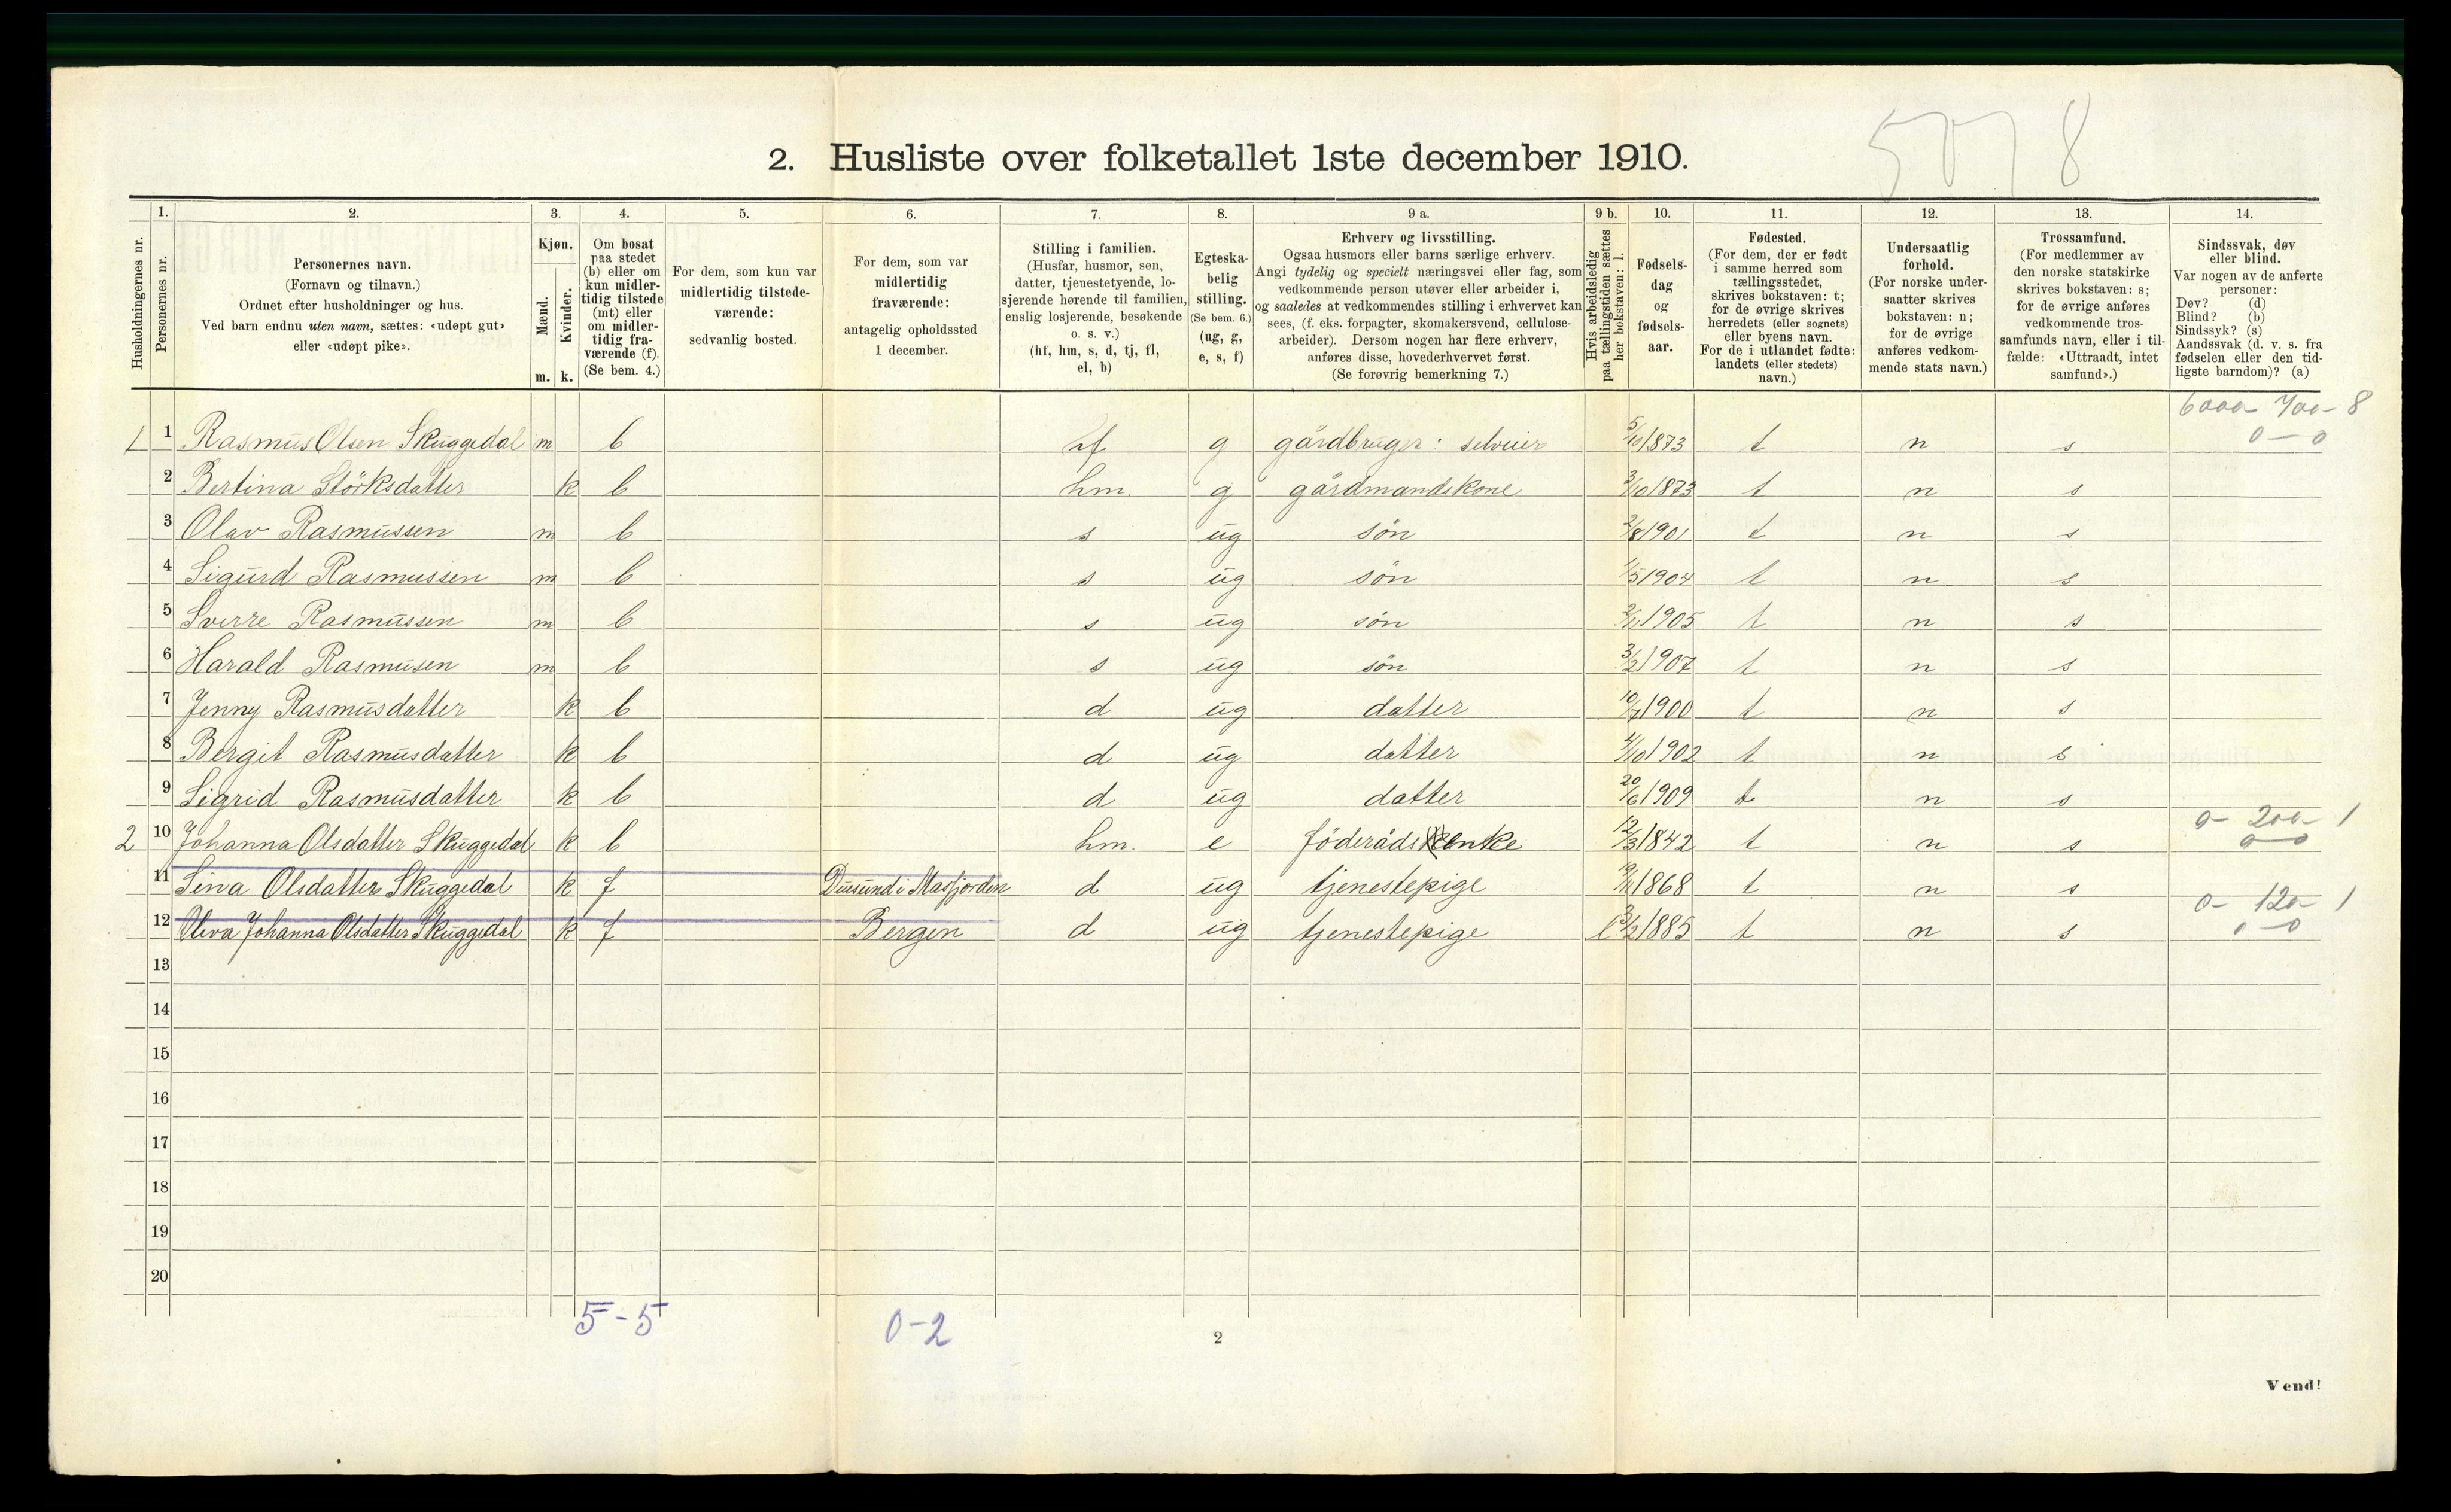 5078
2. Husliste over folketallet 1ste december 1910.
Husholdningernes nr.
1.
Personernes nr.
2.
Personernes navn.
(Fornavn og tilnavn.)
Ordnet efter husholdninger og hus.
Ved barn endnu uten navn, sættes: «udøpt gut»
eller «udøpt pike».
3.
Kjøn.
Mænd.
Kvinder.
m. k.
4.
Om bosat
paa stedet
(b) eller om
kun midler-
tidig tilstede
(mt) eller
om midler-
tidig fra-
værende (f).
(Se bem. 4.)
5.
For dem, som kun var
midlertidig tilstede-
værende:
sedvanlig bosted.
6.
For dem, som var
midlertidig
fraværende:
antagelig opholdssted
1 december.
7.
Stilling i familien.
(Husfar, husmor, søn,
datter, tjenestetyende, lo-
sjerende hørende til familien,
enslig losjerende, besøkende
o. s. v.)
(hf, hm, s, d, tj, fl,
el, b)
8.
Egteska-
belig
stilling.
(Se bem. 6.)
(ug, g,
e, s, f)
9 a.
Erhverv og livsstilling.
Ogsaa husmors eller barns særlige erhverv.
Angi tydelig og specielt næringsvei eller fag, som
vedkommende person utøver eller arbeider i,
og saaledes at vedkommendes stilling i erhvervet kan
sees, (f. eks. forpagter, skomakersvend, cellulose-
arbeider). Dersom nogen har flere erhverv,
anføres disse, hovederhvervet først.
(Se forøvrig bemerkning 7.)
9 b.
Hvis arbeidsledig
paa tællingstiden sættes
her bokstaven: l.
10.
Fødsels-
dag
og
fødsels-
aar.
11.
Fødested.
(For dem, der er født
i samme herred som
tællingsstedet,
skrives bokstaven: t;
for de øvrige skrives
herredets (eller sognets)
eller byens navn.
For de i utlandet fødte:
landets (eller stedets)
navn.)
12.
Undersaatlig
forhold.
(For norske under-
saatter skrives
bokstaven: n;
for de øvrige
anføres vedkom-
mende stats navn.)
13.
Trossamfund.
(For medlemmer av
den norske statskirke
skrives bokstaven: s;
for de øvrige anføres
vedkommende tros-
samfunds navn, eller i til-
fælde: «Uttraadt, intet
samfund».)
14.
Sindssvak, døv
eller blind.
Var nogen av de anførte
personer:
Døv? (d)
Blind? (b)
Sindssyk? (s)
Aandssvak (d. v. s. fra
fødselen eller den tid-
ligste barndom)? (a)
6000 - 700 - 8
0 - 0
1 1 Rasmus Olsen Skuggedal m b hf g gårdbruger: selveier 5/10 1873 t n s
2 Bertina Störksdatter k b hm. g gårdmandskone 3/10 1873 t n s
3 Olav Rasmussen m b s ug sön 2/8 1901 t n s
4 Sigurd Rasmussen m b s ug sön 1/5 1904 t n s
5 Sverre Rasmussen m b s ug sön 2/11 1905 t n s
6 Harald Rasmusen m b s ug sön 3/2 1907 t n s
7 Jenny Rasmusdatter k b d ug datter 10/7 1900 t n s
8 Bergit Rasmusdatter k b d ug datter 4/10 1902 t n s
9 Sigrid Rasmusdatter k b d ug datter 20/6 1909 t n s
0 - 200 - 1
0 - 0
2 10 Johanna Olsdatter Skuggedal k b hm. e föderådsenke 12/3 1842 t n s
11 Sina Olsdatter Skuggedal k f Duesund i Masfjorden d ug tjenestepige 19/11 1868 t n s
0 - 120 - 1
0 - 0
12 Oleva Johanna Olsdatter Skuggedal k f Bergen d ug tjenestepige l 3/2 1885 t n s
13
14
15
16
17
18
19
20
5 - 5
0 - 2
2
Vend!